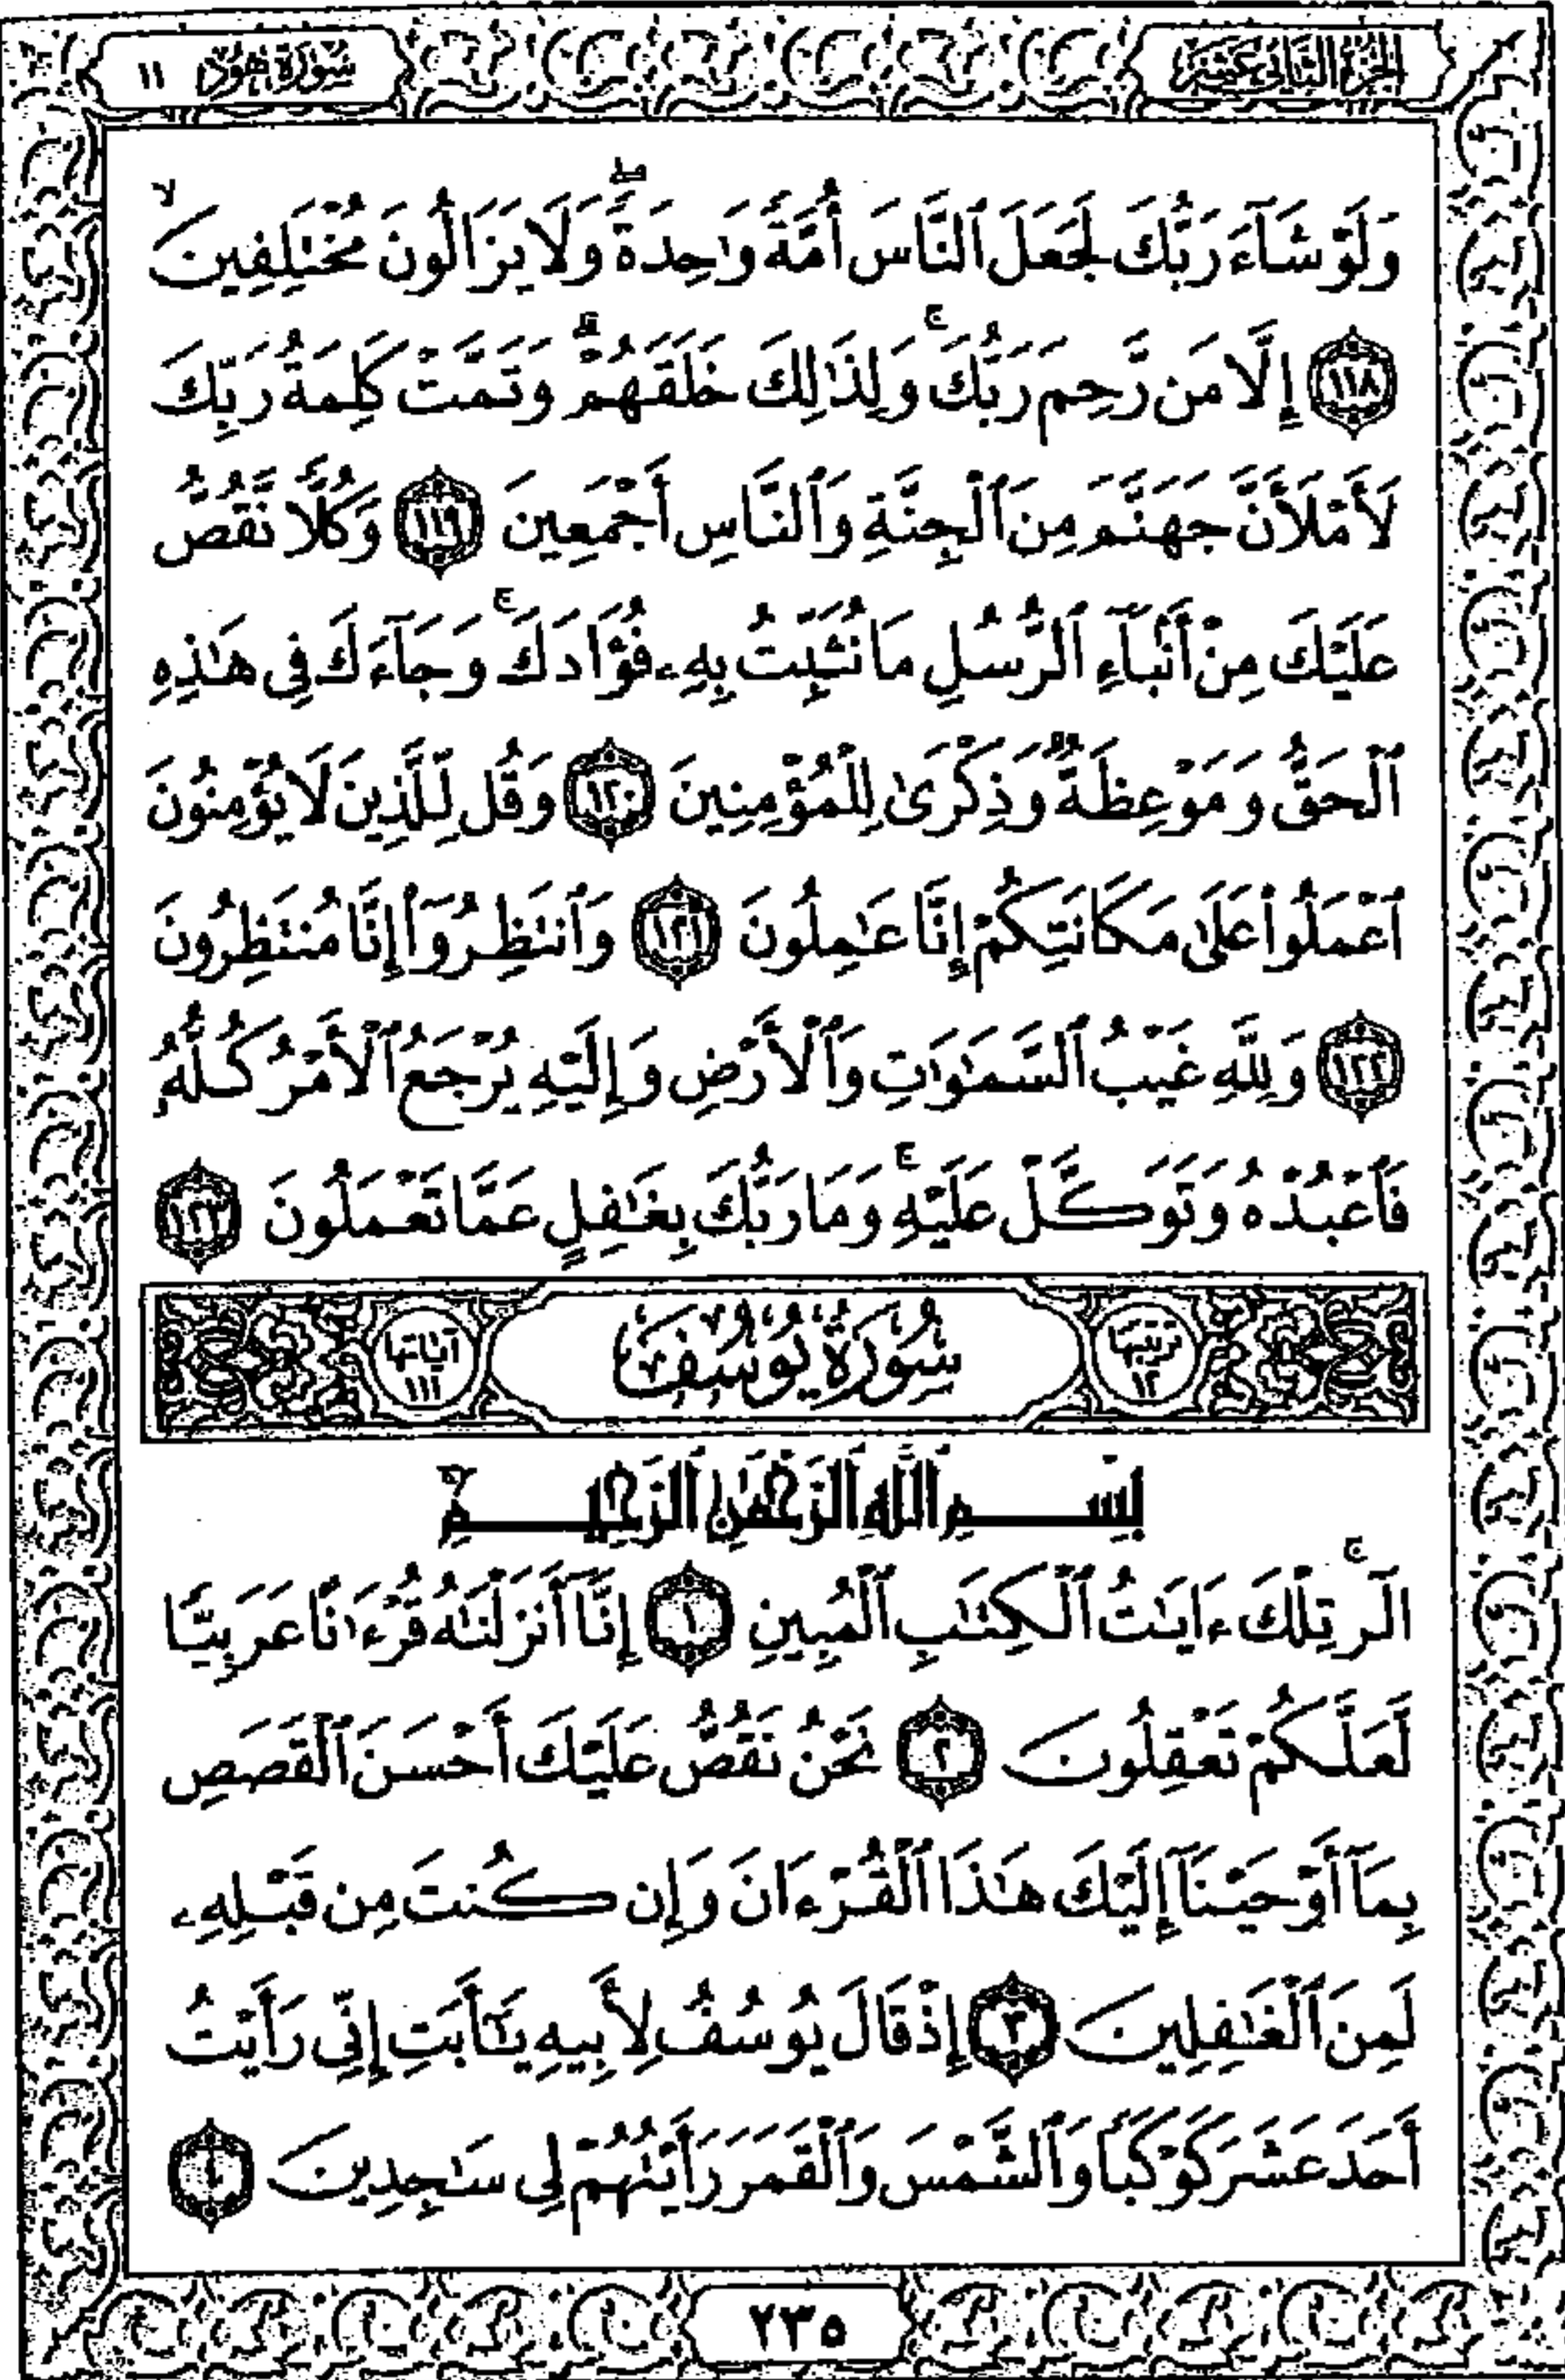 الجزء الثاني عشر
سورة هود ١١
وَلَوْ شَآءَ رَبُّكَ لَجَعَلَ ٱلنَّاسَ أُمَّةً وَٰحِدَةً ۖ وَلَا يَزَالُونَ مُخْتَلِفِينَ ۙ
﴿١١٨﴾ إِلَّا مَن رَّحِمَ رَبُّكَ ۚ وَلِذَٰلِكَ خَلَقَهُمْ ۗ وَتَمَّتْ كَلِمَةُ رَبِّكَ
لَأَمْلَأَنَّ جَهَنَّمَ مِنَ ٱلْجِنَّةِ وَٱلنَّاسِ أَجْمَعِينَ ﴿١١٩﴾ وَكُلًّا نَّقُصُّ
عَلَيْكَ مِنْ أَنۢبَآءِ ٱلرُّسُلِ مَا نُثَبِّتُ بِهِۦ فُؤَادَكَ ۚ وَجَآءَكَ فِى هَٰذِهِ
ٱلْحَقُّ وَمَوْعِظَةٌ وَذِكْرَىٰ لِلْمُؤْمِنِينَ ﴿١٢٠﴾ وَقُل لِّلَّذِينَ لَا يُؤْمِنُونَ
ٱعْمَلُوا۟ عَلَىٰ مَكَانَتِكُمْ إِنَّا عَٰمِلُونَ ﴿١٢١﴾ وَٱنتَظِرُوٓا۟ إِنَّا مُنتَظِرُونَ
﴿١٢٢﴾ وَلِلَّهِ غَيْبُ ٱلسَّمَٰوَٰتِ وَٱلْأَرْضِ وَإِلَيْهِ يُرْجَعُ ٱلْأَمْرُ كُلُّهُۥ
فَٱعْبُدْهُ وَتَوَكَّلْ عَلَيْهِ ۚ وَمَا رَبُّكَ بِغَٰفِلٍ عَمَّا تَعْمَلُونَ ﴿١٢٣﴾
ترتيبها ١٢ سُورَةُ يُوسُفَ آياتها ١١١
بِسْمِ ٱللَّهِ ٱلرَّحْمَٰنِ ٱلرَّحِيمِ
الٓر ۚ تِلْكَ ءَايَٰتُ ٱلْكِتَٰبِ ٱلْمُبِينِ ﴿١﴾ إِنَّآ أَنزَلْنَٰهُ قُرْءَٰنًا عَرَبِيًّا
لَّعَلَّكُمْ تَعْقِلُونَ ﴿٢﴾ نَحْنُ نَقُصُّ عَلَيْكَ أَحْسَنَ ٱلْقَصَصِ
بِمَآ أَوْحَيْنَآ إِلَيْكَ هَٰذَا ٱلْقُرْءَانَ وَإِن كُنتَ مِن قَبْلِهِۦ
لَمِنَ ٱلْغَٰفِلِينَ ﴿٣﴾ إِذْ قَالَ يُوسُفُ لِأَبِيهِ يَٰٓأَبَتِ إِنِّى رَأَيْتُ
أَحَدَ عَشَرَ كَوْكَبًا وَٱلشَّمْسَ وَٱلْقَمَرَ رَأَيْتُهُمْ لِى سَٰجِدِينَ ﴿٤﴾
٢٣٥